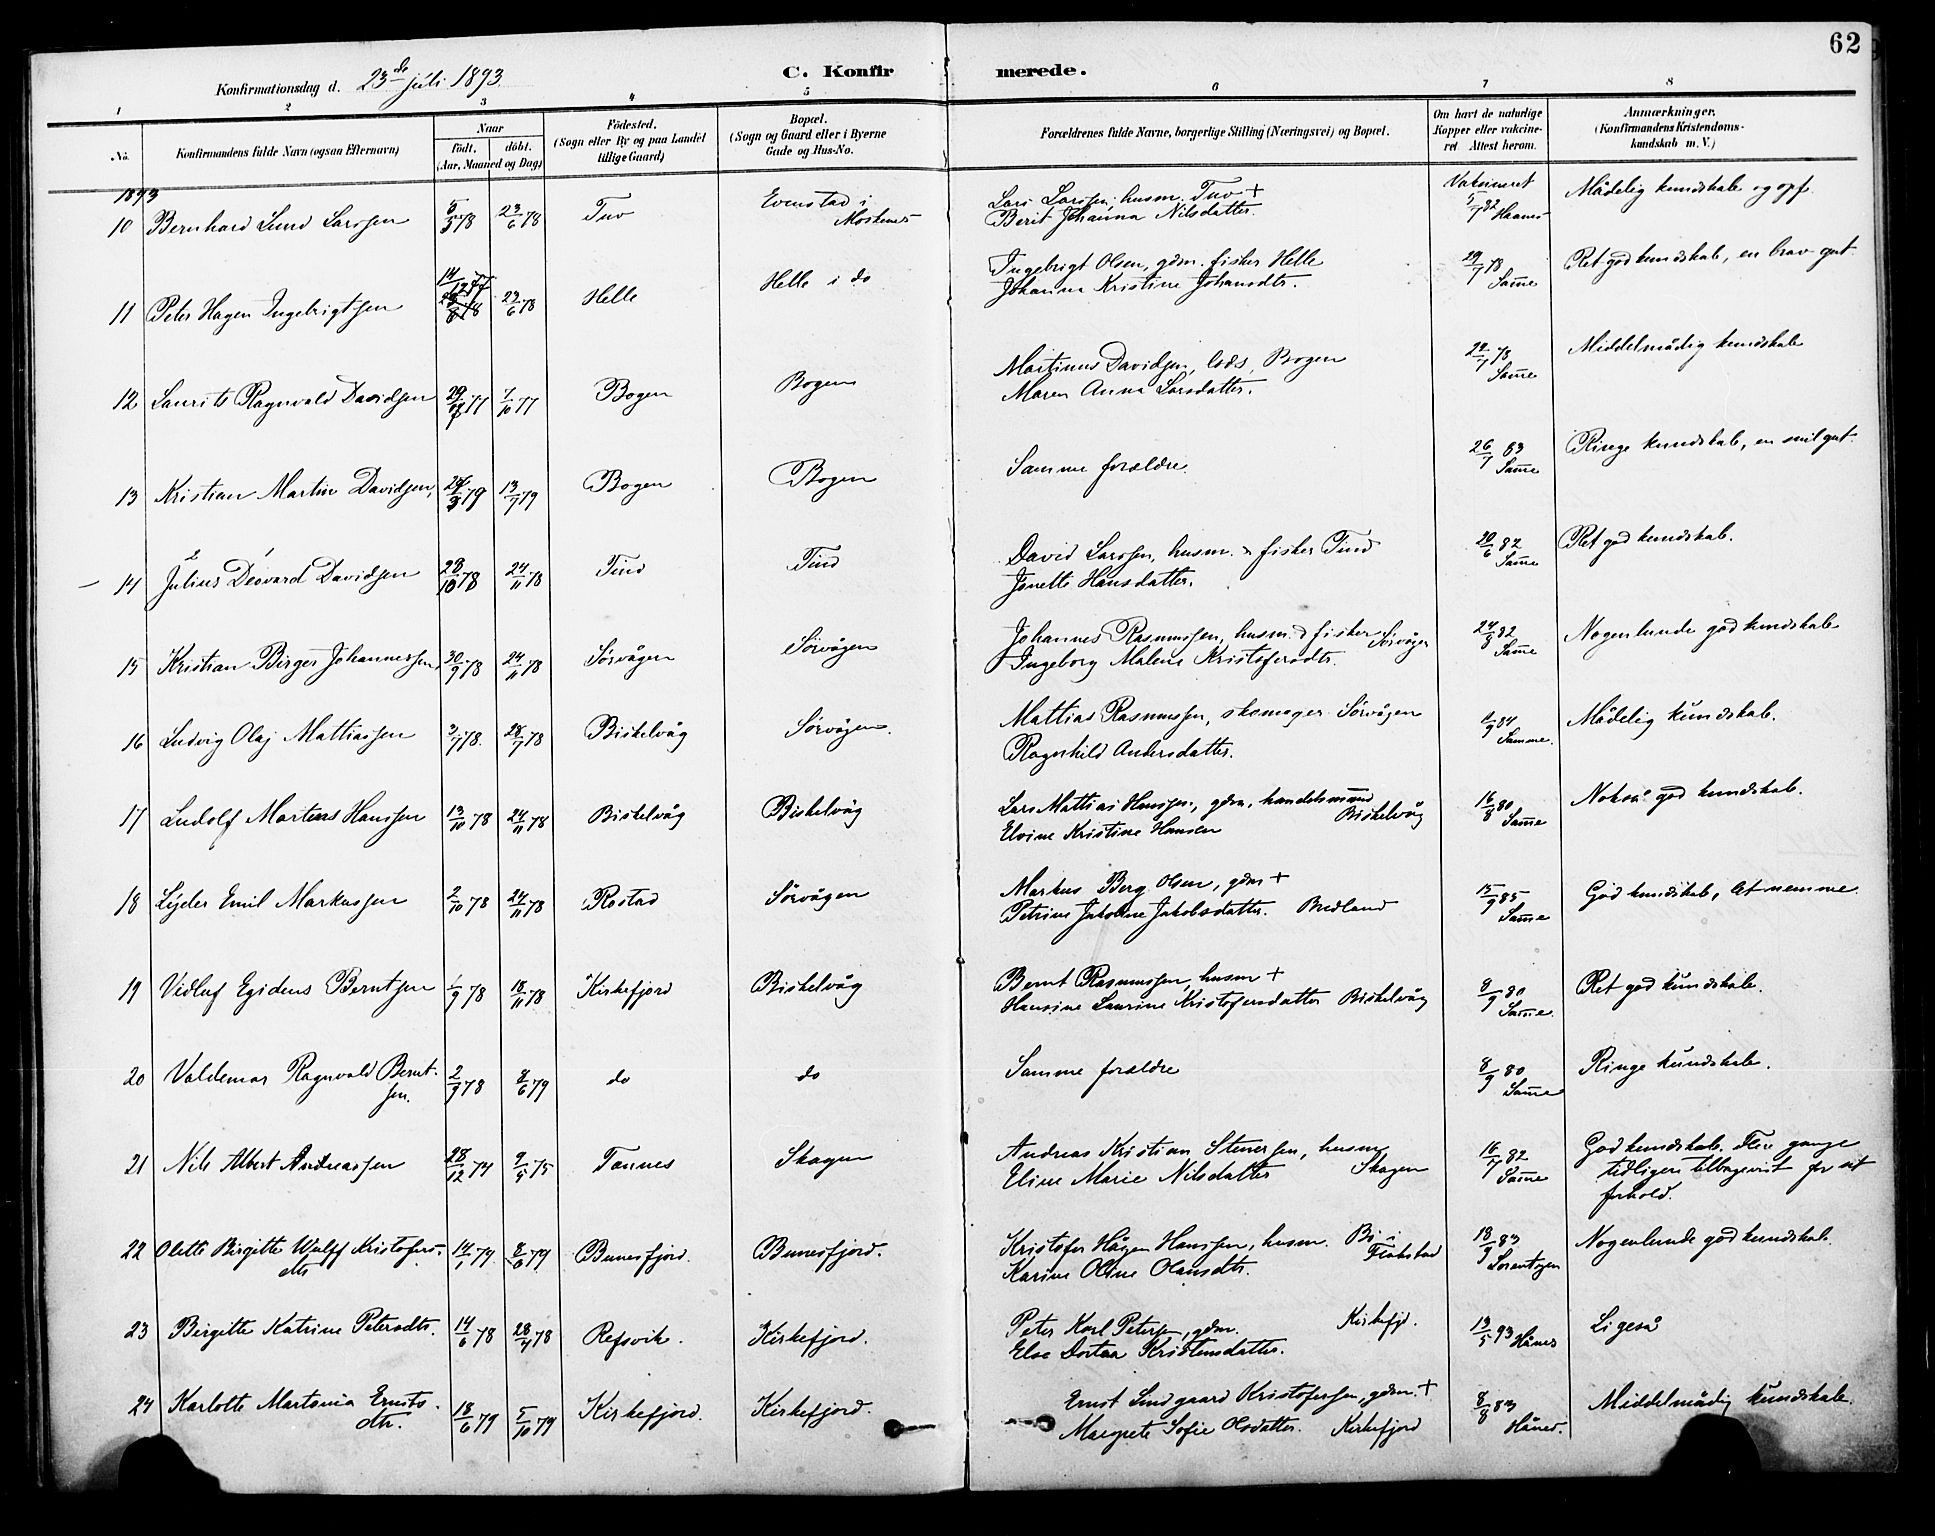 62
Konfirmationsdag d. 23de juli 1893.
C. Konfirmerede.
1 2 3 4 5 6 7 8
No.
Konfirmandens fulde Navn (ogsaa Efternavn)
Naar
födt. döbt.
(Aar, Maaned og Dag)
Födested.
(Sogn eller By og paa Landet tillige Gaard)
Bopæl.
(Sogn og Gaard eller i Byerne Gade og Hus-No.
Forældrenes fulde Navne, borgerlige Stilling (Næringsvei) og Bopæl.
Om havt de naturlige Kopper eller vakcineret Attest herom.
Anmærkninger.
(Konfirmandens Kristendomskundskab m. V.)
1893
10 Bernhard Lund Larssen 5/3 78 23/6 78 Tuv Evenstad i Moskenes Lars Larssen, husm. Tuv +
Berit Johanna Nilsdatter. Vaksineret 5/7 82 Haanes Mådelig kundskab og opf.
11 Peter Hagen Ingebrigtsen 14/12 77 23/6 78 Helle Helle i do Ingebrigt Olsen, gdm. fisker Helle
Johanna Kristine Johansdtr. 29/7 78 Samme Ret god kundskab, en brav gut
12 Laurits Ragnvald Davidsen 7/10 77 Bogen Bogen Martinus Davidsen, lods, Bogen
Maren Anna Larsdatter. 29/7 78 Samme Middelmådig kundskab
13 Kristian Martin Davidsen, 24/3 79 13/7 79 Bogen Bogen Samme forældre. 26/7 83 Samme Ringe kundskab, en snil gut
14 Julius Deovard Davidsen 28/10 78 24/11 78 Tind Tind David Larssen, husm. & fisker Tind
Jonette Hansdatter. 20/6 82 Samme Ret god kundskab.
15 Kristian Birger Johannessen 30/9 78 24/11 78 Sørvågen Sørvågen Johannes Rasmussen, husm. & fisker Sørvågen
Ingeborg Malene Kristofersdtr. 24/8 82 Samme Nogenlunde god kundskab
16 Ludvig Olaj Mattiassen 3/7 78. 28/7 78 Biskelvåg Sørvågen. Mattias Rasmussen, skomager Sørvågen
Ragnhild Andersdatter. 1/9 84 Samme. Mådelig kundskab.
17 Ludolf Martens Hanssen 13/10 78 24/11 78 Biskelvåg Biskelvåg Lars Mattias Hanssen, gdm, handelsmand Biskelvåg
Elvine Kristine Hansen 16/8 80 Samme Nokså god kundskab.
18 Lyder Emil Markussen 2/10 78 24/11 78 Rostad Sørvågen Markus Berg Olsen, gdm +
Petrine Jakobine Jakobsdatter. Bredland 15/9 85 Samme God kundskab, let nemme.
19 Vidluf Egidius Berntsen 1/9 78 18/11 78 Kirkefjord Biskelvåg Bernt Rasmussen, husm +
Hansine Laurine Kristofersdatter Biskelvåg 8/9 80 Samme. Ret god kundskab.
20 Valdemar Ragnvald Berntsen. 2/9 78 8/6 79 do do Samme forældre 8/9 80 Samme Ringe kundskab.
21 Nils Albert Andreassen 28/12 74 9/5 75 Tonnes Skagen Andreas Kristian Stenersen, husm. Skagen
Eline Marie Nilsdatter 16/7 82 Samme God kundskab. Flere gange tidligere tilbagevist for sit forhold.
22 Olette Birgitte Wulff Kristofersdtr 14/1 79 8/6 79 Bunesfjord. Bunesfjord. Kristofer Hågen Hanssen, husm. Bø i Flakstad
Karine Oline Olausdtr. 18/9 83 Sorentzen Nogenlunde god kundskab.
23 Birgitte Katrine Petersdtr. 14/6 78 28/7 78 Refsvik. Kirkefjord. Peter Karl Petersen, gdm. Kirkefjd.
Else Dortea Kristensdatter. 13/5 93 Hånes Ligeså
24 Karlotte Martonia Ernstsdtr. 18/6 79 5/10 79 Kirkefjord. Kirkefjord. Ernst Lindgaard Kristofersen, gdm. +
Margrete Sofie Olsdatter. Kirkefjord 8/8 83 Hånes. Middelmådig kundskab.